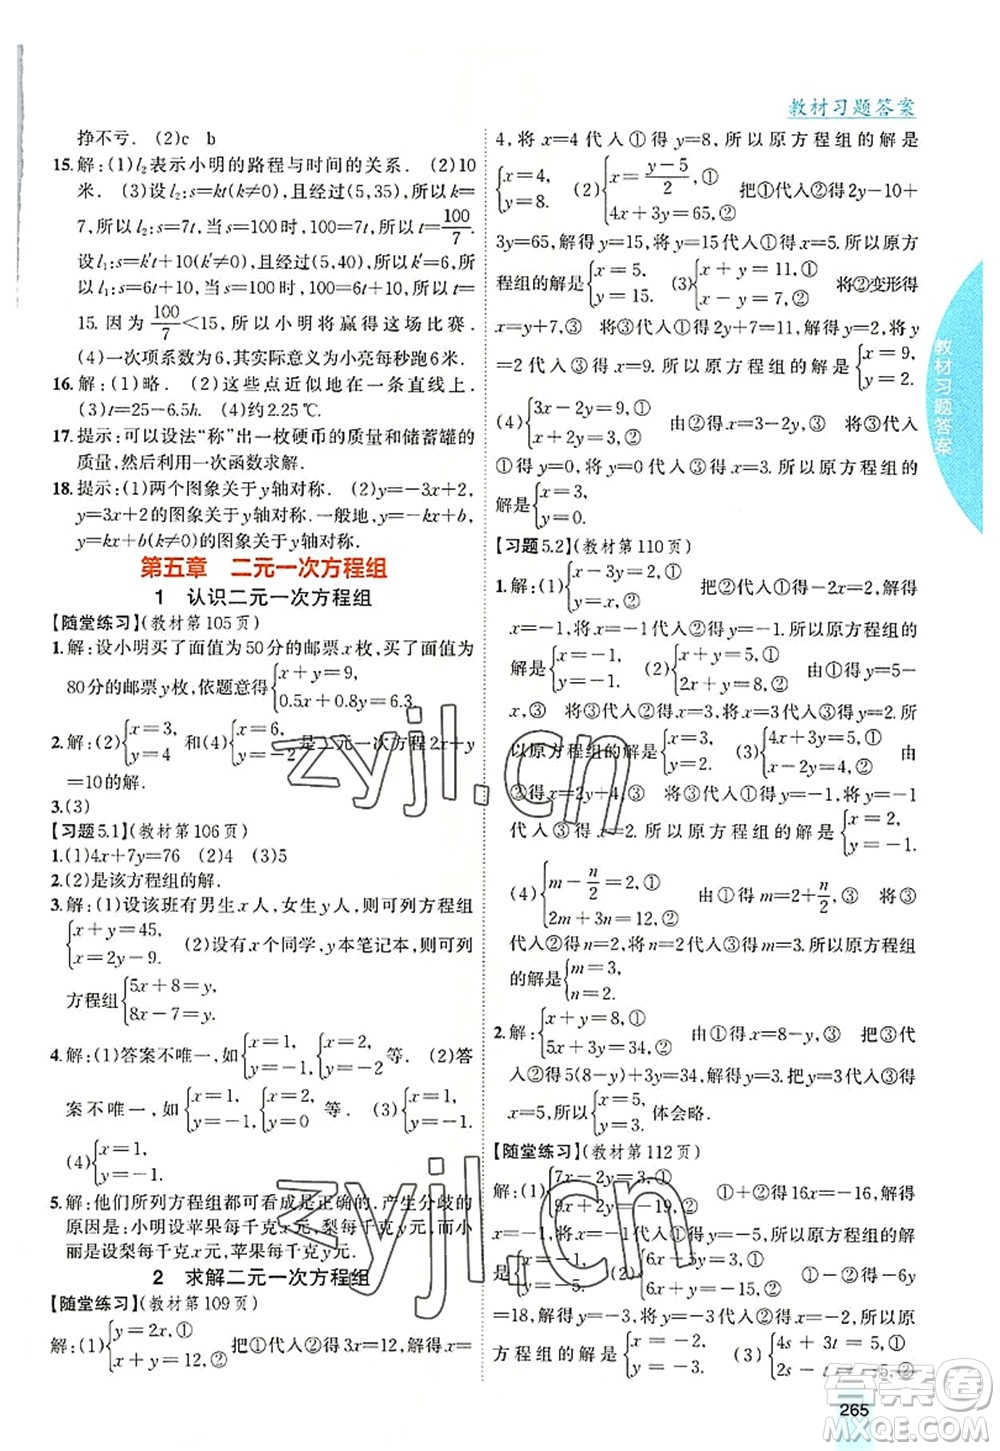 教材习题答案
挣不亏. (2)c b
15.解:(1)l₂表示小明的路程与时间的关系. (2)10
米. (3)设l₂:s=kt(k≠0),且经过(5,35),所以k=
7,所以l₂:s=7t,当s=100时,100=7t,所以t=100/7.
设l₁:s=k′t+10(k′≠0),且经过(5,40),所以k′=
6,所以l₁:s=6t+10,当s=100时,100=6t+10,t=
15.因为100/7<15,所以小明将赢得这场比赛.
(4)一次项系数为6,其实际意义为小亮每秒跑6米.
16.解:(1)略. (2)这些点近似地在一条直线上.
(3)t=25-6.5h. (4)约2.25℃.
17.提示:可以设法“称”出一枚硬币的质量和储蓄罐的
质量,然后利用一次函数求解.
18.提示:(1)两个图象关于y轴对称. (2)y=-3x+2,
y=3x+2的图象关于y轴对称.一般地,y=-kx+b,
y=kx+b(k≠0)的图象关于y轴对称.
第五章 二元一次方程组
1 认识二元一次方程组
【随堂练习】(教材第105页)
1.解:设小明买了面值为50分的邮票x枚,买了面值为
80分的邮票y枚,依题意得{x+y=9, 0.5x+0.8y=6.3.
2.解:(2){x=3, y=4 和(4){x=6, y=-2 是二元一次方程2x+y
=10的解.
3.(3)
【习题5.1】(教材第106页)
1.(1)4x+7y=76 (2)4 (3)5
2.(2)是该方程组的解.
3.解:(1)设该班有男生x人,女生y人,则可列方程组
{x+y=45, x=2y-9. (2)设有x个同学,y本笔记本,则可列
方程组{5x+8=y, 8x-7=y.
4.解:(1)答案不唯一,如{x=1, y=-1,{x=2, y=-2 等. (2)答
案不唯一,如{x=1, y=-1,{x=1, y=-2 等. (3){x=1, y=-1.
(4){x=1, y=2.
5.解:他们所列方程组都可看成是正确的.产生分歧的
原因是:小明设苹果每千克x元,梨每千克y元,而小
丽是设梨每千克x元,苹果每千克y元.
2 求解二元一次方程组
【随堂练习】(教材第109页)
解:(1){y=2x,① x+y=12,② 把①代入②得3x=12,解得x=
4,将x=4代入①得y=8,所以原方程组的解是
{x=4, y=8. (2){x=(y-5)/2,① 4x+3y=65,② 把①代入②得2y-10+
3y=65,解得y=15,将y=15代入①得x=5.所以原方
程组的解是{x=5, y=15. (3){x+y=11,① x-y=7,② 将②变形得
x=y+7,③ 将③代入①得2y+7=11,解得y=2,将
y=2代入③得x=9,所以原方程组的解是{x=9, y=2.
(4){3x-2y=9,① x+2y=3,② 由②得x=3-2y,③ 将③代入
①得9-8y=9,解得y=0,将y=0代入③得x=3,所以原方程组的
解是{x=3, y=0.
【习题5.2】(教材第110页)
把②代入①得y=-1.将y=-1代入②得
x=-1,将x=-1代入②得y=-1.所以原方程组的解
由①得y=5-
x,③
以原方程组的解是
由②得x=
将③代入
①得
代入③得x=3.所以原方程组的解是
(4){m-n/2=2,① 2m+3n=12,② 由①得m=2+n/2,③ 将③
代入②得n=2,将n=2代入③得m=3,所以原方程组
的解是{m=3, n=2.
2.解:{x+y=8,① 5x+3y=34,② 由①得x=8-y,③ 把③代
入②得5(8-y)+3y=34,解得y=3,把y=3代入③得
x=5,所以{x=5, y=3. 体会略.
【随堂练习】(教材第112页)
解:(1){7x-2y=-3,① 9x+2y=-19,② ①+②得16x=-16,解得
y=-5. (2){6x-5y=3,① 6x+y=-15,② ①-②得-6y
=18,解得y=-3,将y=-3代入②得x=-2,所以原
方程组的解是{x=-2, y=-3. (3){4s+3t=5,① 2s-t=-5,②
教材习题答案
265
zyjl.cn
zyjl.cn
答案圈
MXQE.COM